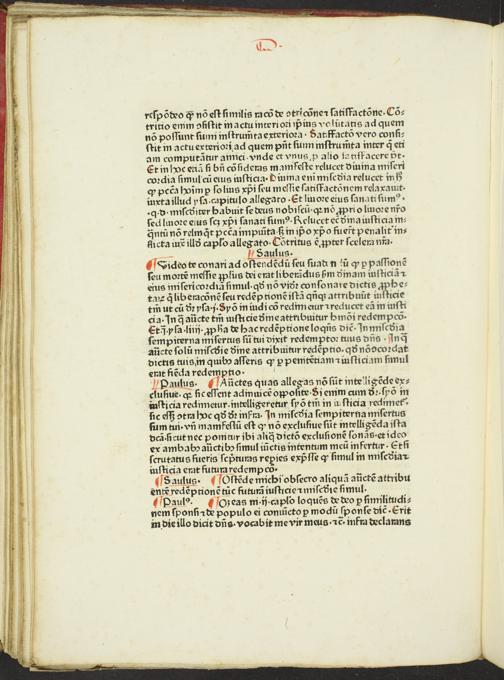 respōdeo qꝫ nō est similis racō de ↄtricōne ⁊ satisfactōne. Cō⸗
tritio enim ↄsistit in actu interiori ipīus volūtatis ad quem
nō possunt sumi instrumēta exteriora. Satisfactō vero consi⸗
stit in actu exteriori, ad quem pn̄t sumi instrumēta inter q̄ eti
am computātur amici. vnde et vnus, p alio satisfacere pt.
Et in hoc etiā si bn̄ consideras manifeste relucet diuina miseri
cordia simul cū eius iusticia. Diuina eni misc̄dia relucet in h
qꝫ pctā hoīm p solius xp̄i seu messie satisfactōnem relaxauit
iuxta illud ysa. capitulo allegato. Et liuore eius sanati sumꝰ.
.q.d. misc̄diter habuit se deus nobiscū. qꝫ nō pprio liuore nr̄o
sed liuore eius scꝫ xp̄i sanati sumꝰ. Relucet ec̄ diuina iusticia in
qntū nō relinqt pctā impunita. ß in ip̄o xp̄o fuerūt penalit in⸗
flicta iux illd caplo allegato. Cōtritus ē ppter scelera nr̄a.
Saulus.
Video te conari ad ostendēdū seu suadendū qꝫ p passionē
seu mortē messie
eius misericordia simul. qd nō vidr consonare dictis pphe⸗
tarꝫ q liberacōnē seu redēptionē istā qnqꝫ attribuūt iusticie
tm̄ ut cū dr ysa.i. Syon in iudi cō redimetur ⁊ reducet eā in iusti
cia. In q auctē tm̄ iusticie diuīe attribuitur hmōi redempcō.
Et q ysa.liiij. ppha de hac redēptione loqns dic. In misc̄dia
sempiterna misertus sū tui dixit redemptor tuus dn̄s. In q
auctē solū misc̄die diuīe attribuitur redēptio. qd nō ↄcordat
dictis tuis, in quibꝫ asseris qꝫ p penitētiam ⁊ iusticiam simul
erat fiēda redemptio.
Paulus. Auctēs quas allegas nō sūt intelligēde ex⸗
clusiue. qꝫ sic essent adinuicē opposite. Si enim cum dr. syō in
iusticia redimetur. intelligeretur syō tm̄ in iusticia redimetᷣ.
sic eß ↄtra hoc qd dr infra. In misc̄dia sempiterna misertus
sum tui. vn̄ manifestū est qꝫ nō exclusiue sūt intelligēda ista
dcā. sicut nec ponitur ibi aliqd dictō exclusionē sonās. et ideo
ex ambabꝫ auctibꝫ simul iūctis intentum meū infertur. Et si
scrutatus fueris scpturas repies expsse qꝫ simul in misc̄dia ⁊
iusticia erat futura redempcō.
Saulus. Ostēde michi obsecro aliquā auctē attribu
entē redēptionē tūc futurā iusticie ⁊ misc̄die simul.
Paulꝰ. Oseas in.ij. caplo loquēs de deo p similitudi⸗
nem sponsi ⁊ de populo ei conuicto p modū sponse dic. Erit
in die illo dicit dn̄s. vocabit me vir meus. ⁊c. infra declarans